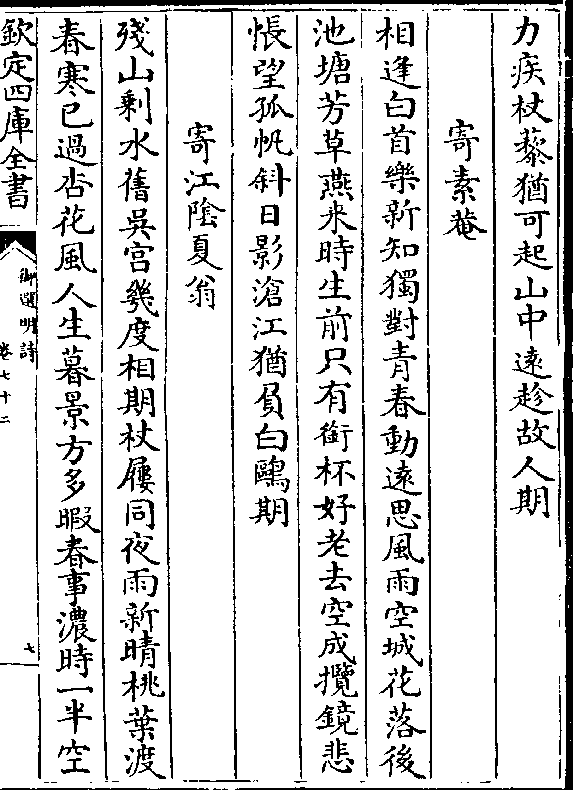 力疾杖藜猶可起山中遠趁故人期
寄素菴
相逢白首樂新知獨對青春動遠思風雨空城花落後
池塘芳草燕来時生前只有銜杯好老去空成攬鏡悲
悵望孤帆斜日影滄江猶負白鷗期
寄江隂夏翁
殘山剰水舊吳宫幾度相期杖屨同夜雨新晴桃葉渡
春寒已過杏花風人生暮景方多暇春事濃時一半空
欽定四庫全書
御選明詩
卷七十二
七